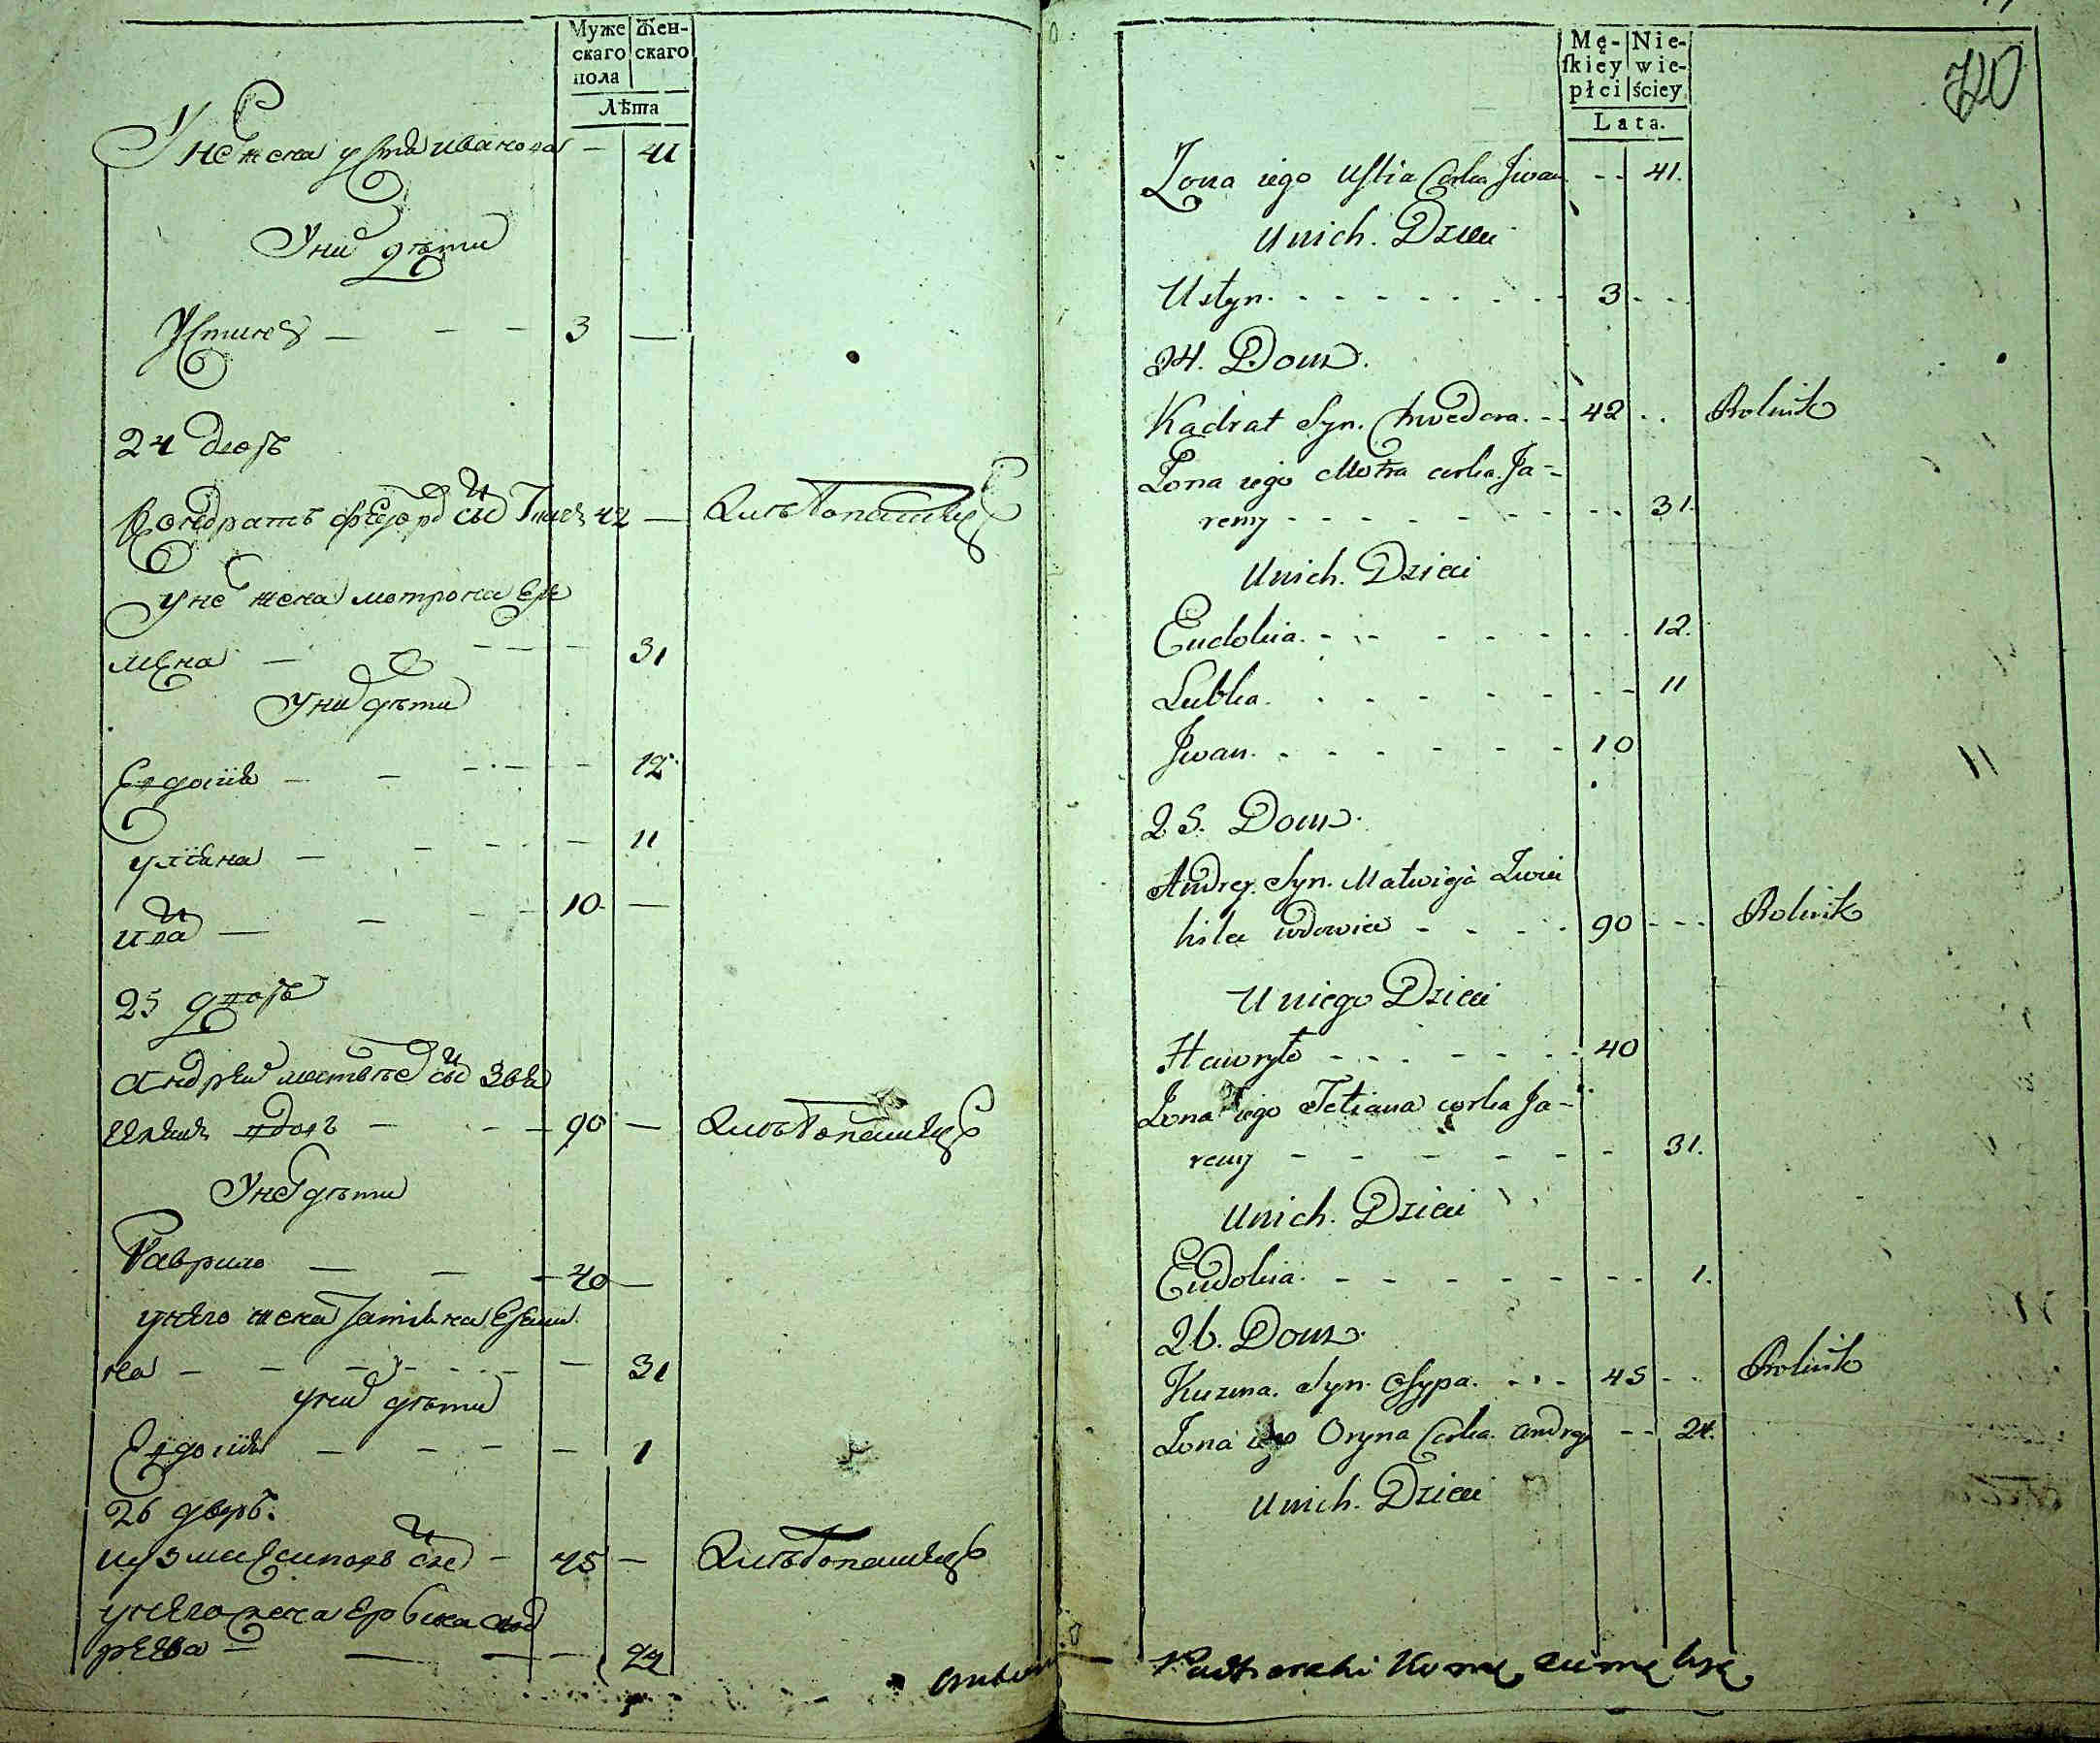 Муже Жен-
скаго скаго
пола
Лѣта
У не жена устя иванова — 41
У ни дѣти
Устинъ — — — 3 —
24 дворъ
Кондратъ федоро сы 42 —
У не жена мотрона Ере
мѣна — — — 31
У ни дѣти
Евдокия — — — 12
улияна — — — 11
Ива — — — 10 —
25 дворъ
андрей матвѣе сы Зве
вдовъ — — 90 —
У не дѣти
Гаврило — — 40 —
у него жена татияна Ереми
на — — — 31
у ни дѣти
Евдокия — — — — 1
26 дворъ.
кузма Есиповъ сы — 45 —
у него жена Ерына анд
реева — — — 24
Mę- Nie-
ſkiey wie-
płci ściey
Lata.
70
Zona iego Ustia Corka Jwan - - 41.
Unich. Dzieci
Ustyn. - - - - - - - 3 - - -
24. Dom.
Kadrat Syn. Chwedora. - - 42 . . Rolnik
Zona iego Motra corka Ja-
remy - - - - - - - - 31.
Unich. Dzieci
Eudokia. - - - - - - - 12.
Lubka. - - - - - - - 11
Jwan. - - - - - - 10
25. Dom.
Andrey. Syn. Matwieja Zwie
wdowiec - - - - 90 - - - Rolnik
U niego Dzieci
Hawryło - - - - - - 40
Zona iego Tetiana corka Ja-
remy - - - - - - - 31.
Unich. Dzieci
Eudokia. - - - - - - - - 1.
26. Dom.
Kuzma. Syn. Osypa. - - - 45 - - Rolnik
Zona iego Oryna Corka. Andrey - - 24.
Unich. Dzieci